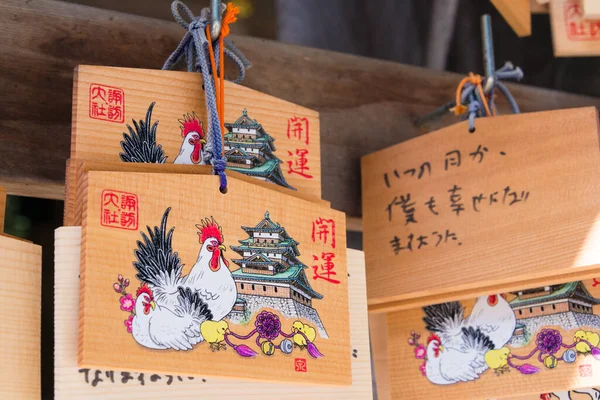 諏訪
大社
開運
諏訪
大社
開運
なりますように。
いつの日か、
僕も幸せになり
ますように。